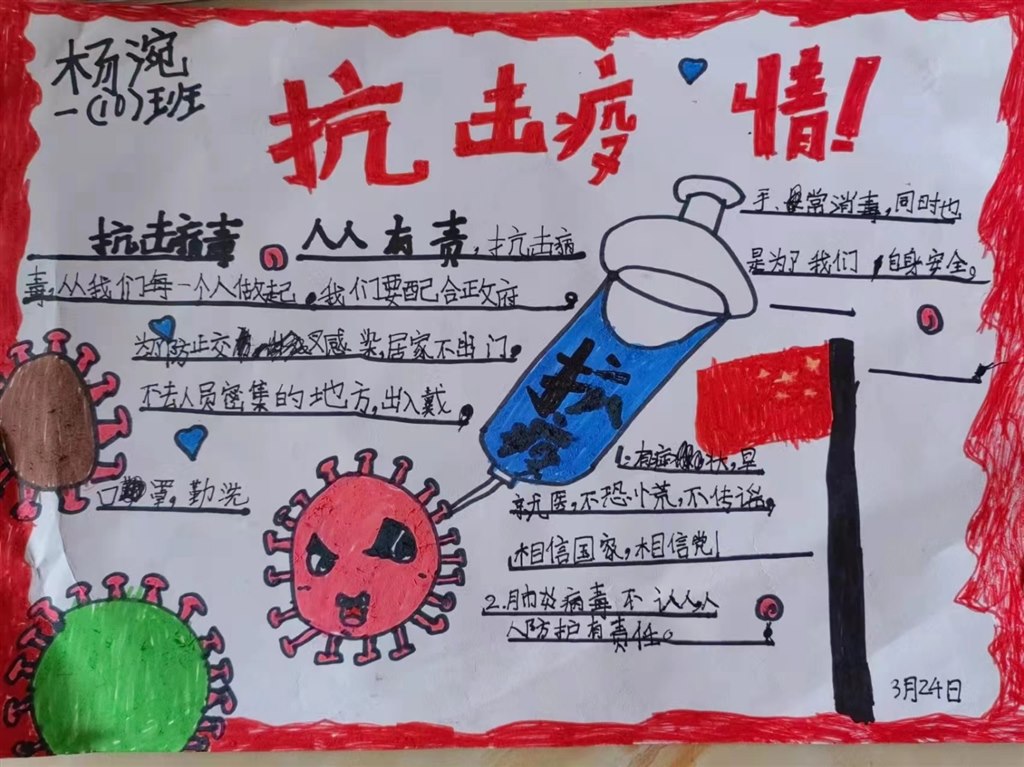 杨涴
一(10)班
抗击疫情!
抗击病毒 人人有责,抗击病
毒,从我们每一个人做起,我们要配合政府
为了防止交叉感染,居家不出门,
不去人员密集的地方,出入戴
口罩,勤洗
手、常消毒,同时也
是为了我们自身安全。
抗疫
1.有症状,早
就医,不恐慌,不传谣,
相信国家,相信党!
2.肺炎病毒不认人,人
人防护有责任。
3月24日